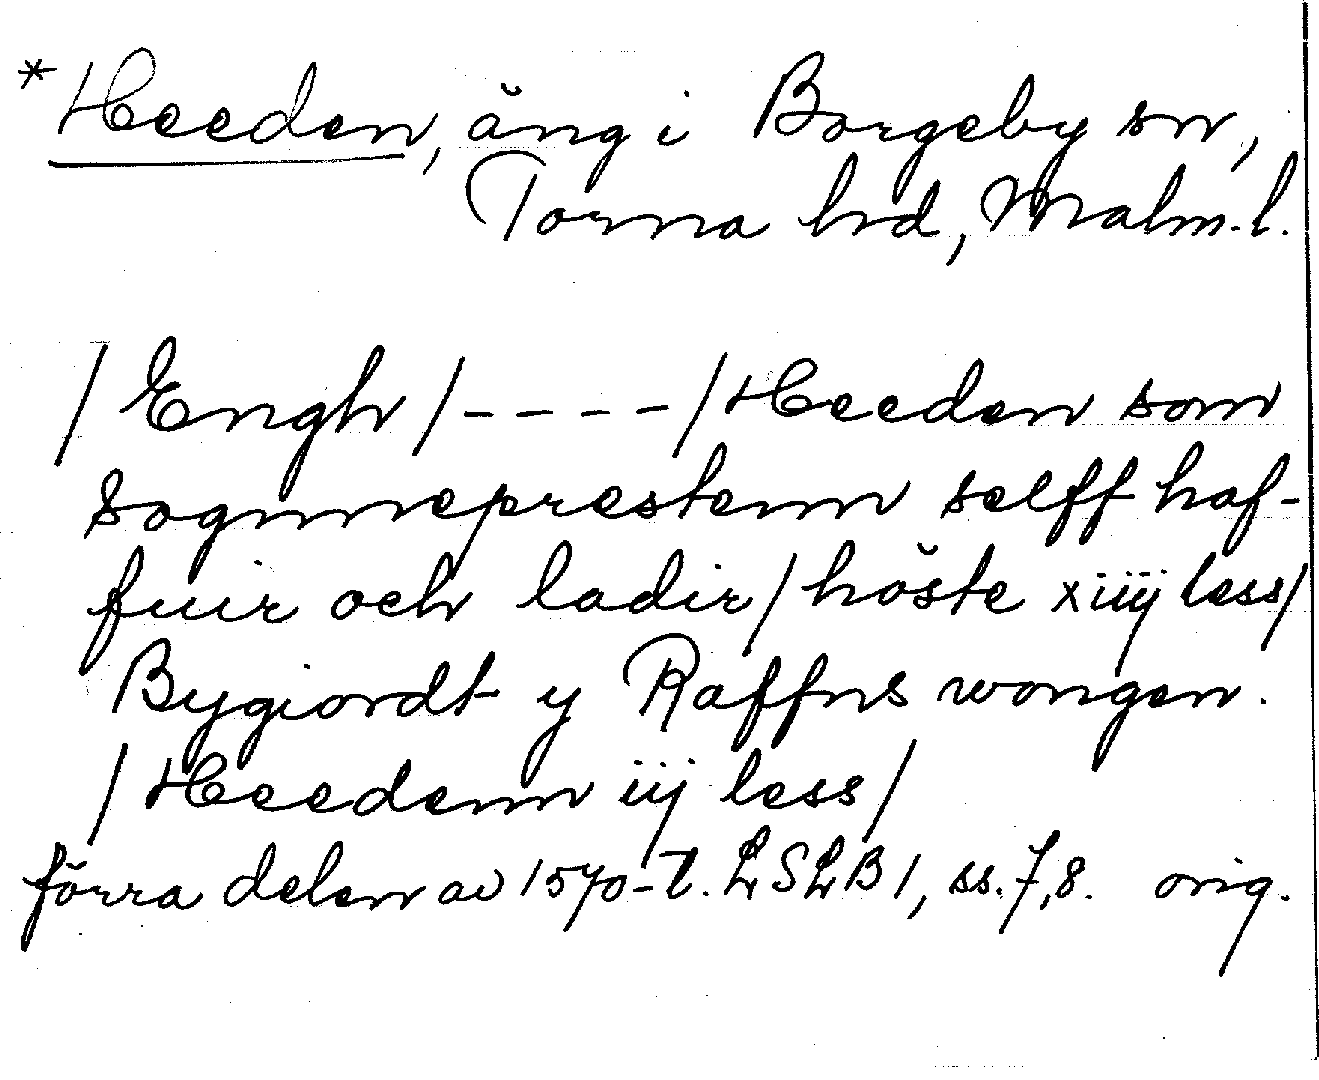 *Heeden, äng i Borgeby sn,
Torna hd, Malm.l.
/Engh/----/Heeden som
Sognneprestenn selff haf-
fuir och ladir/höste xiiij less/
Bygiordt y Raffns wongen.
/Heedenn iij less/
förra delen av 1570-t. LSLB 1, ss. 7,8. orig.